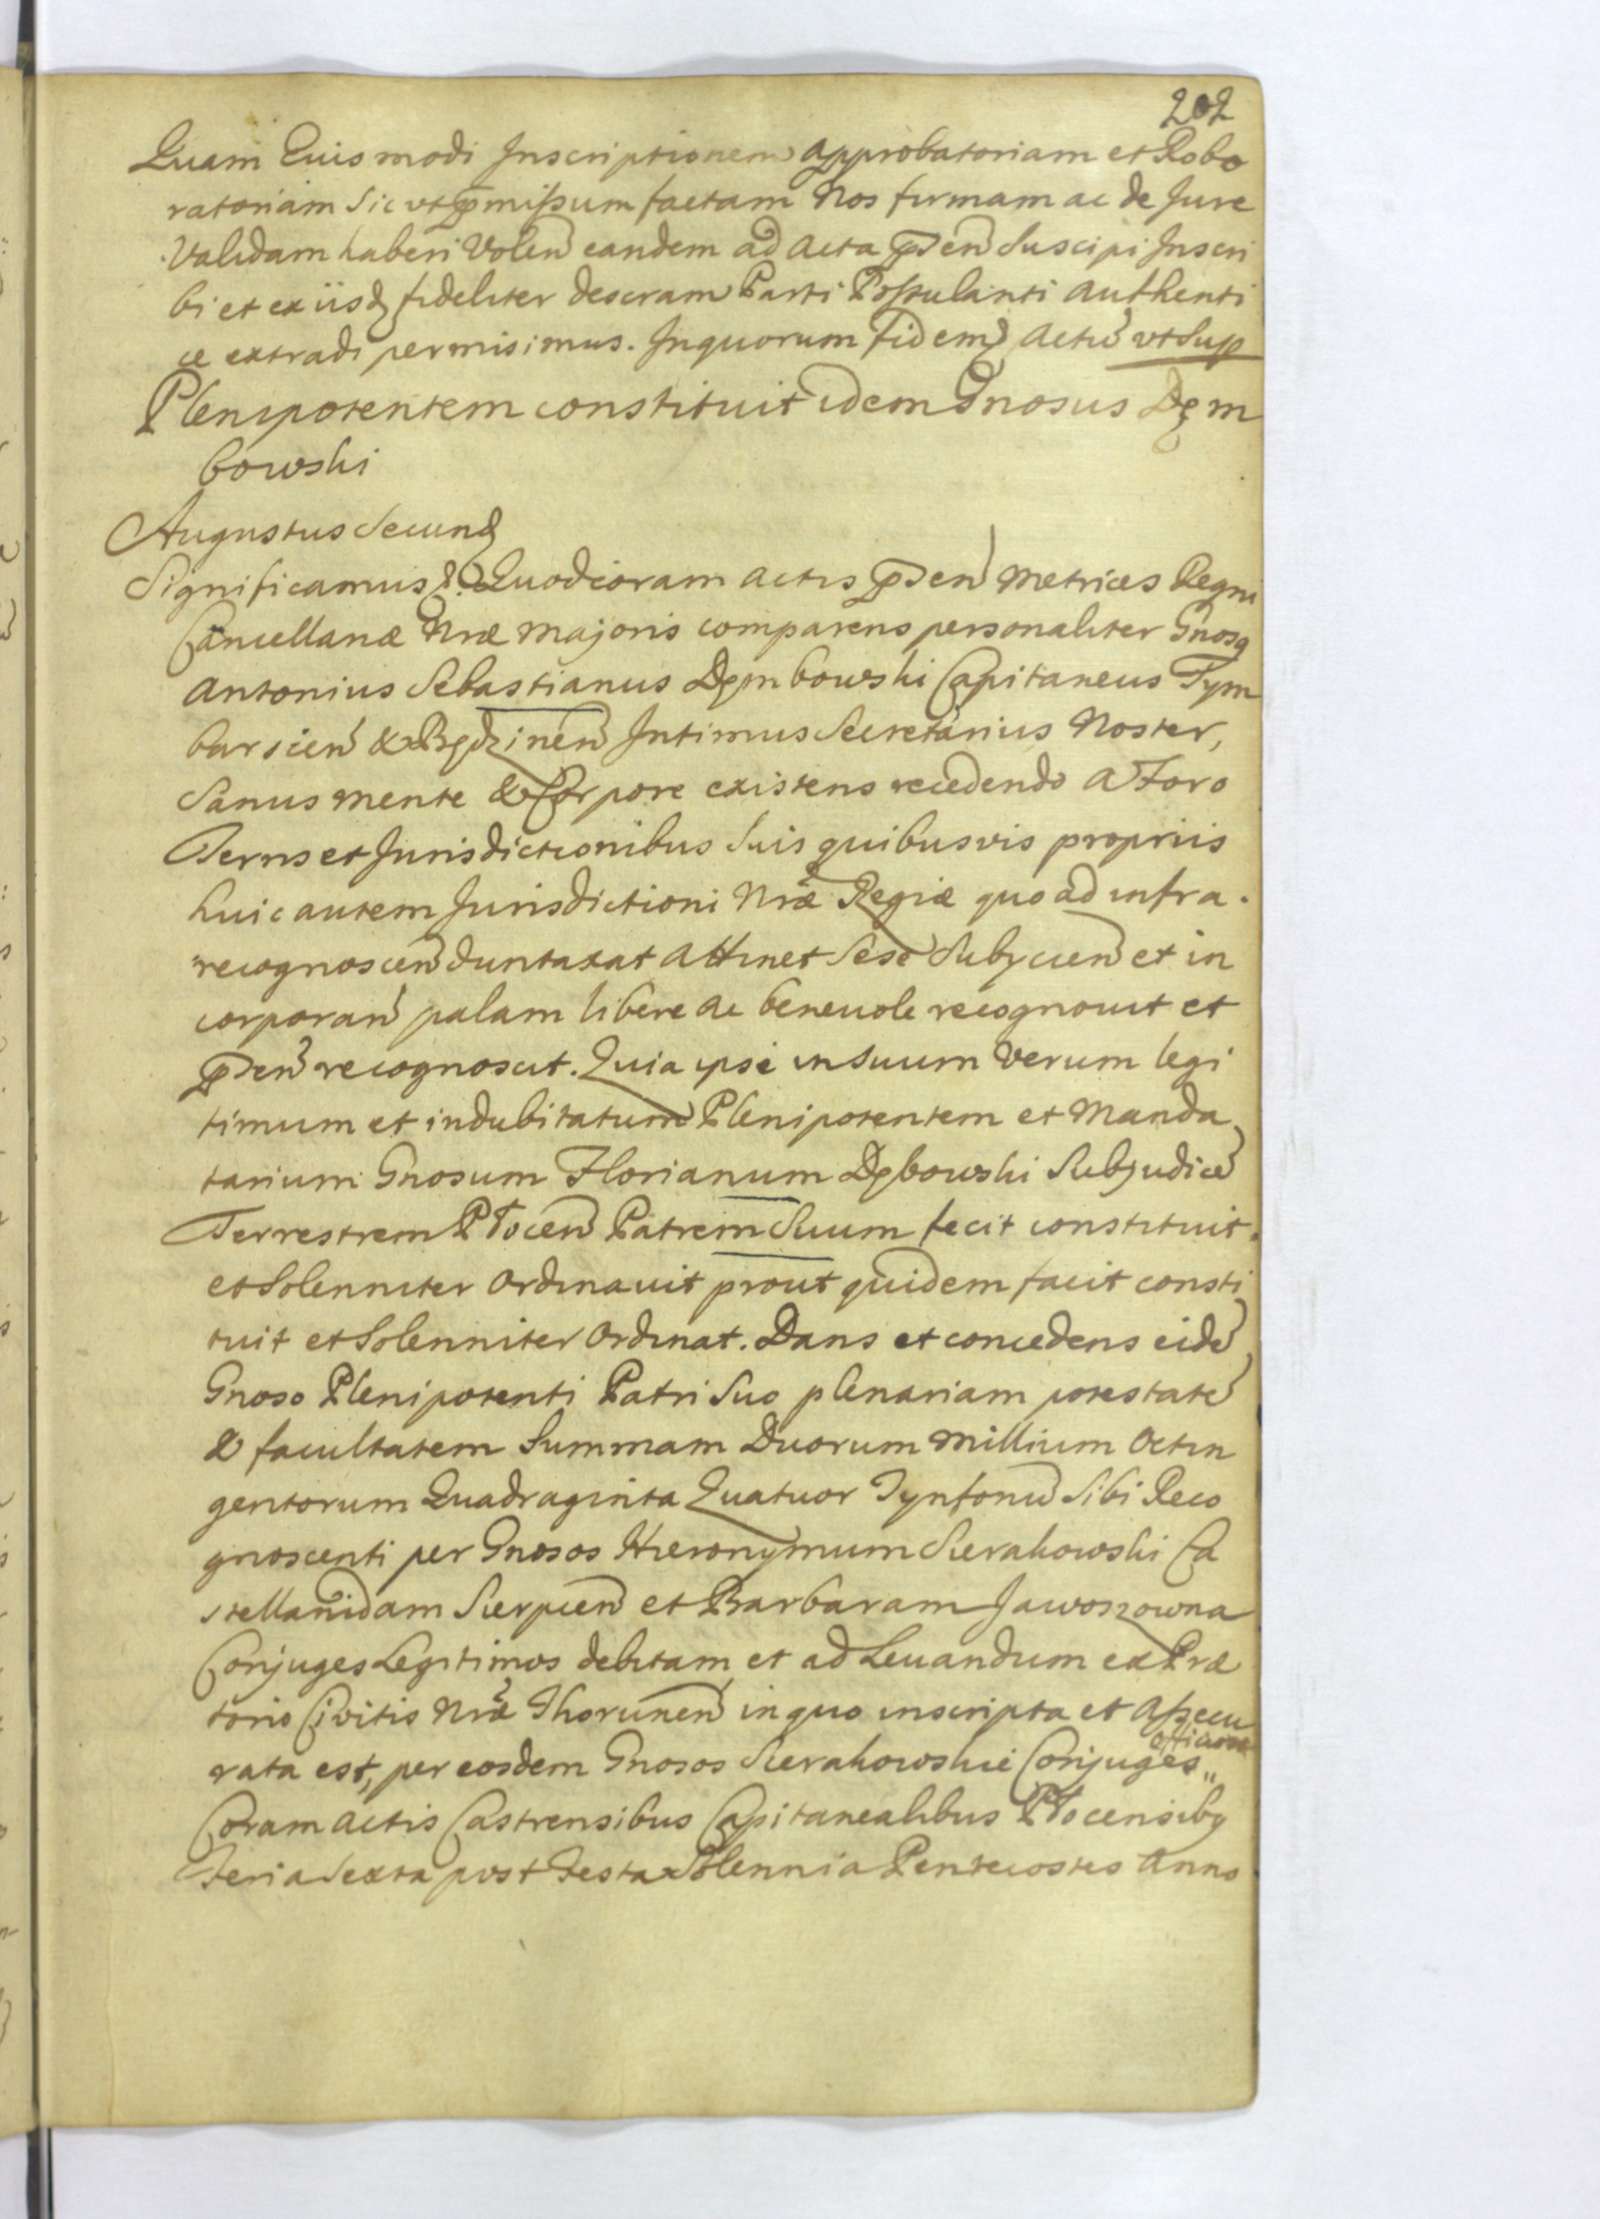 202
Quam Euismodi Inscriptionem approbatoriam et Robo
ratoriam Sic vt p̃missum factam Nos firmam ac de Jure
Validam haberi Volen̄ eandem ad acta p̃sen̄ Suscipi Inscri
bi et ex iisdꝫ fideliter descram Parti Postulanti authenti
ce extradi permisimus. In quorum Fidemꝫ Actū vt Sup
Plenipotentem constituit idem Gnosus Dęm
bowski
Augustus Secundꝫ
Significamus &. Quod coram actis p̃sen̄ Metrices Regni
Cancellariæ Nræ majoris comparens personaliter Gnosꝫ
Antonius Sebastianus Dęmbowski Capitaneus Tym
barscien̄ & Będzinen̄ Intimus Secretarius Noster,
Sanus mente & Corpore existens recedendo a Foro
Terris et Jurisdictionibus Suis quibusvis propriis
huic autem Jurisdictioni Nræ Regiæ quo ad infra.
recognoscen̄ duntaxat attinet Sese Subjicien̄ et in
corporan̄ palam libere ac beneuole recognouit et
p̃sen̄ recognoscit. Quia ipse in Suum Verum legi
timum et indubitatum Plenipotentem et Manda
tarium Gnosum Florianum Dębowski Subjudicē
Terrestrem Płocen̄ Patrem Suum fecit constituit.
et Solenniter Ordinauit prout quidem facit consti
tuit et Solenniter Ordinat. Dans et concedens eidē
Gnoso Plenipotenti Patri Suo plenariam potestatē
& facultatem Summam Duorum Millium Octin
gentorum Quadraginta Quatuor Tynfonū Sibi Reco
gnoscenti per Gnosos Hieronymum Sierakowski Ca
stellanidam Sierpcen̄ et Barbaram Jawoszowna
Conjuges Legitimos debitam et ad Leuandum ex Præ
torio Civitis Nræ Thorunen̄ in quo inscripta et Assecu
rata est, per eosdem Gnosos Sierakowskie Conjuges„
Coram actis Castrensibus Capitanealibus Płocensibꝫ
Feria Sexta post Festa Solennia Pentecostes Anno